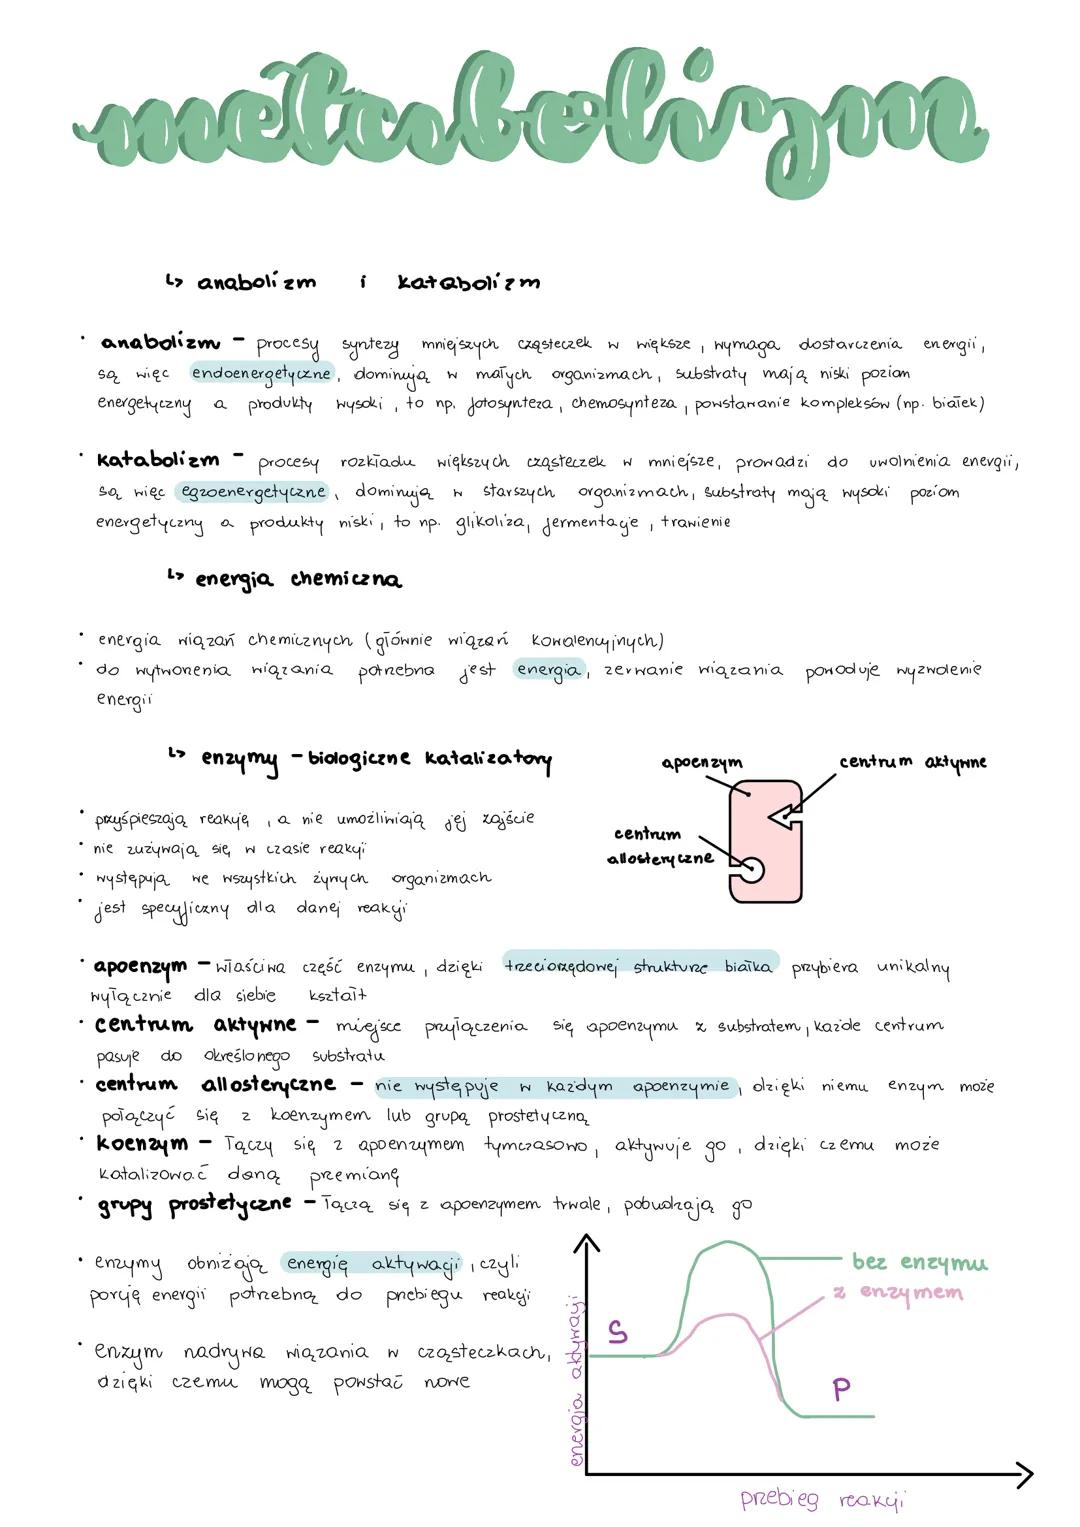 metabolizm
↳ anabolizm i katabolizm
· anabolizm - procesy syntezy mniejszych cząsteczek w większe, wymaga dostarczenia energii,
są więc endoenergetyczne, dominują w małych organizmach, substraty mają niski poziom
energetyczny a produkty wysoki, to np. fotosynteza, chemosynteza, powstawanie kompleksów (np. białek)
· katabolizm - procesy rozkładu większych cząsteczek w mniejsze, prowadzi do uwolnienia energii,
są więc egzoenergetyczne, dominują w starszych organizmach, substraty mają wysoki poziom
energetyczny a produkty niski, to np. glikoliza, fermentacje, trawienie
↳ energia chemiczna
· energia wiązań chemicznych (głównie wiązań kowalencyjnych)
· do wytworzenia wiązania potrzebna jest energia, zerwanie wiązania powoduje wyzwolenie
energii
↳ enzymy - biologiczne katalizatory
apoenzym
centrum aktywne
centrum
allosteryczne
· przyśpieszają reakcję, a nie umożliwiają jej zajście
· nie zużywają się w czasie reakcji
· występują we wszystkich żywych organizmach
· jest specyficzny dla danej reakcji
· apoenzym - właściwa część enzymu, dzięki trzeciorzędowej strukturze białka przybiera unikalny
wyłącznie dla siebie kształt
· centrum aktywne - miejsce przyłączenia się apoenzymu z substratem, każde centrum
pasuje do określonego substratu
· centrum allosteryczne - nie występuje w każdym apoenzymie, dzięki niemu enzym może
połączyć się z koenzymem lub grupą prostetyczną
· koenzym - łączy się z apoenzymem tymczasowo, aktywuje go, dzięki czemu może
katalizować daną przemianę
· grupy prostetyczne - łączą się z apoenzymem trwale, pobudzają go
· enzymy obniżają energię aktywacji, czyli
porcję energii potrzebną do przebiegu reakcji
· enzym nadrywa wiązania w cząsteczkach,
dzięki czemu mogą powstać nowe
energia aktywacji
S
bez enzymu
z enzymem
P
przebieg reakcji